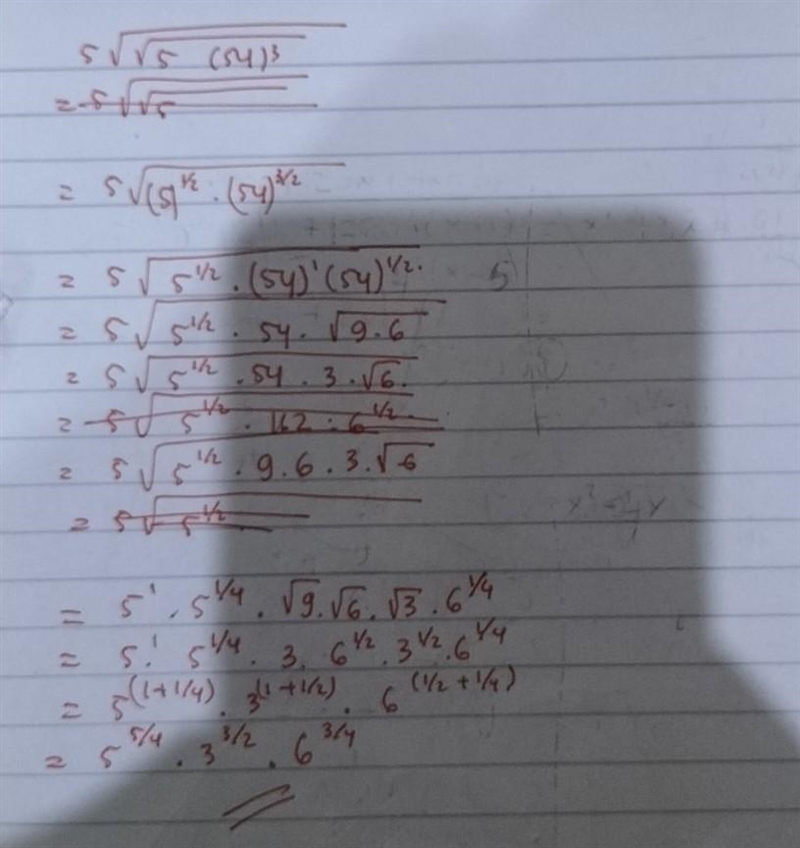 5√√5 (54)³
= 5√√5
= 5√(5)^1/2 . (54)^3/2
= 5√5^1/2 . (54)^1 (54)^1/2.
= 5√5^1/2 . 54 . √9.6
= 5√5^1/2 . 54 . 3 . √6.
= 5√5^1/2 . 162 . 6^1/2.
= 5√5^1/2 . 9 . 6 . 3 . √6
= 5√5^1/2 .
= 5^1 . 5^1/4 . √9 . √6 . √3 . 6^1/4
= 5^1 . 5^1/4 . 3 . 6^1/2 . 3^1/2 . 6^1/4
= 5^(1+1/4) . 3^(1+1/2) . 6^(1/2+1/4)
= 5^5/4 . 3^3/2 . 6^3/4